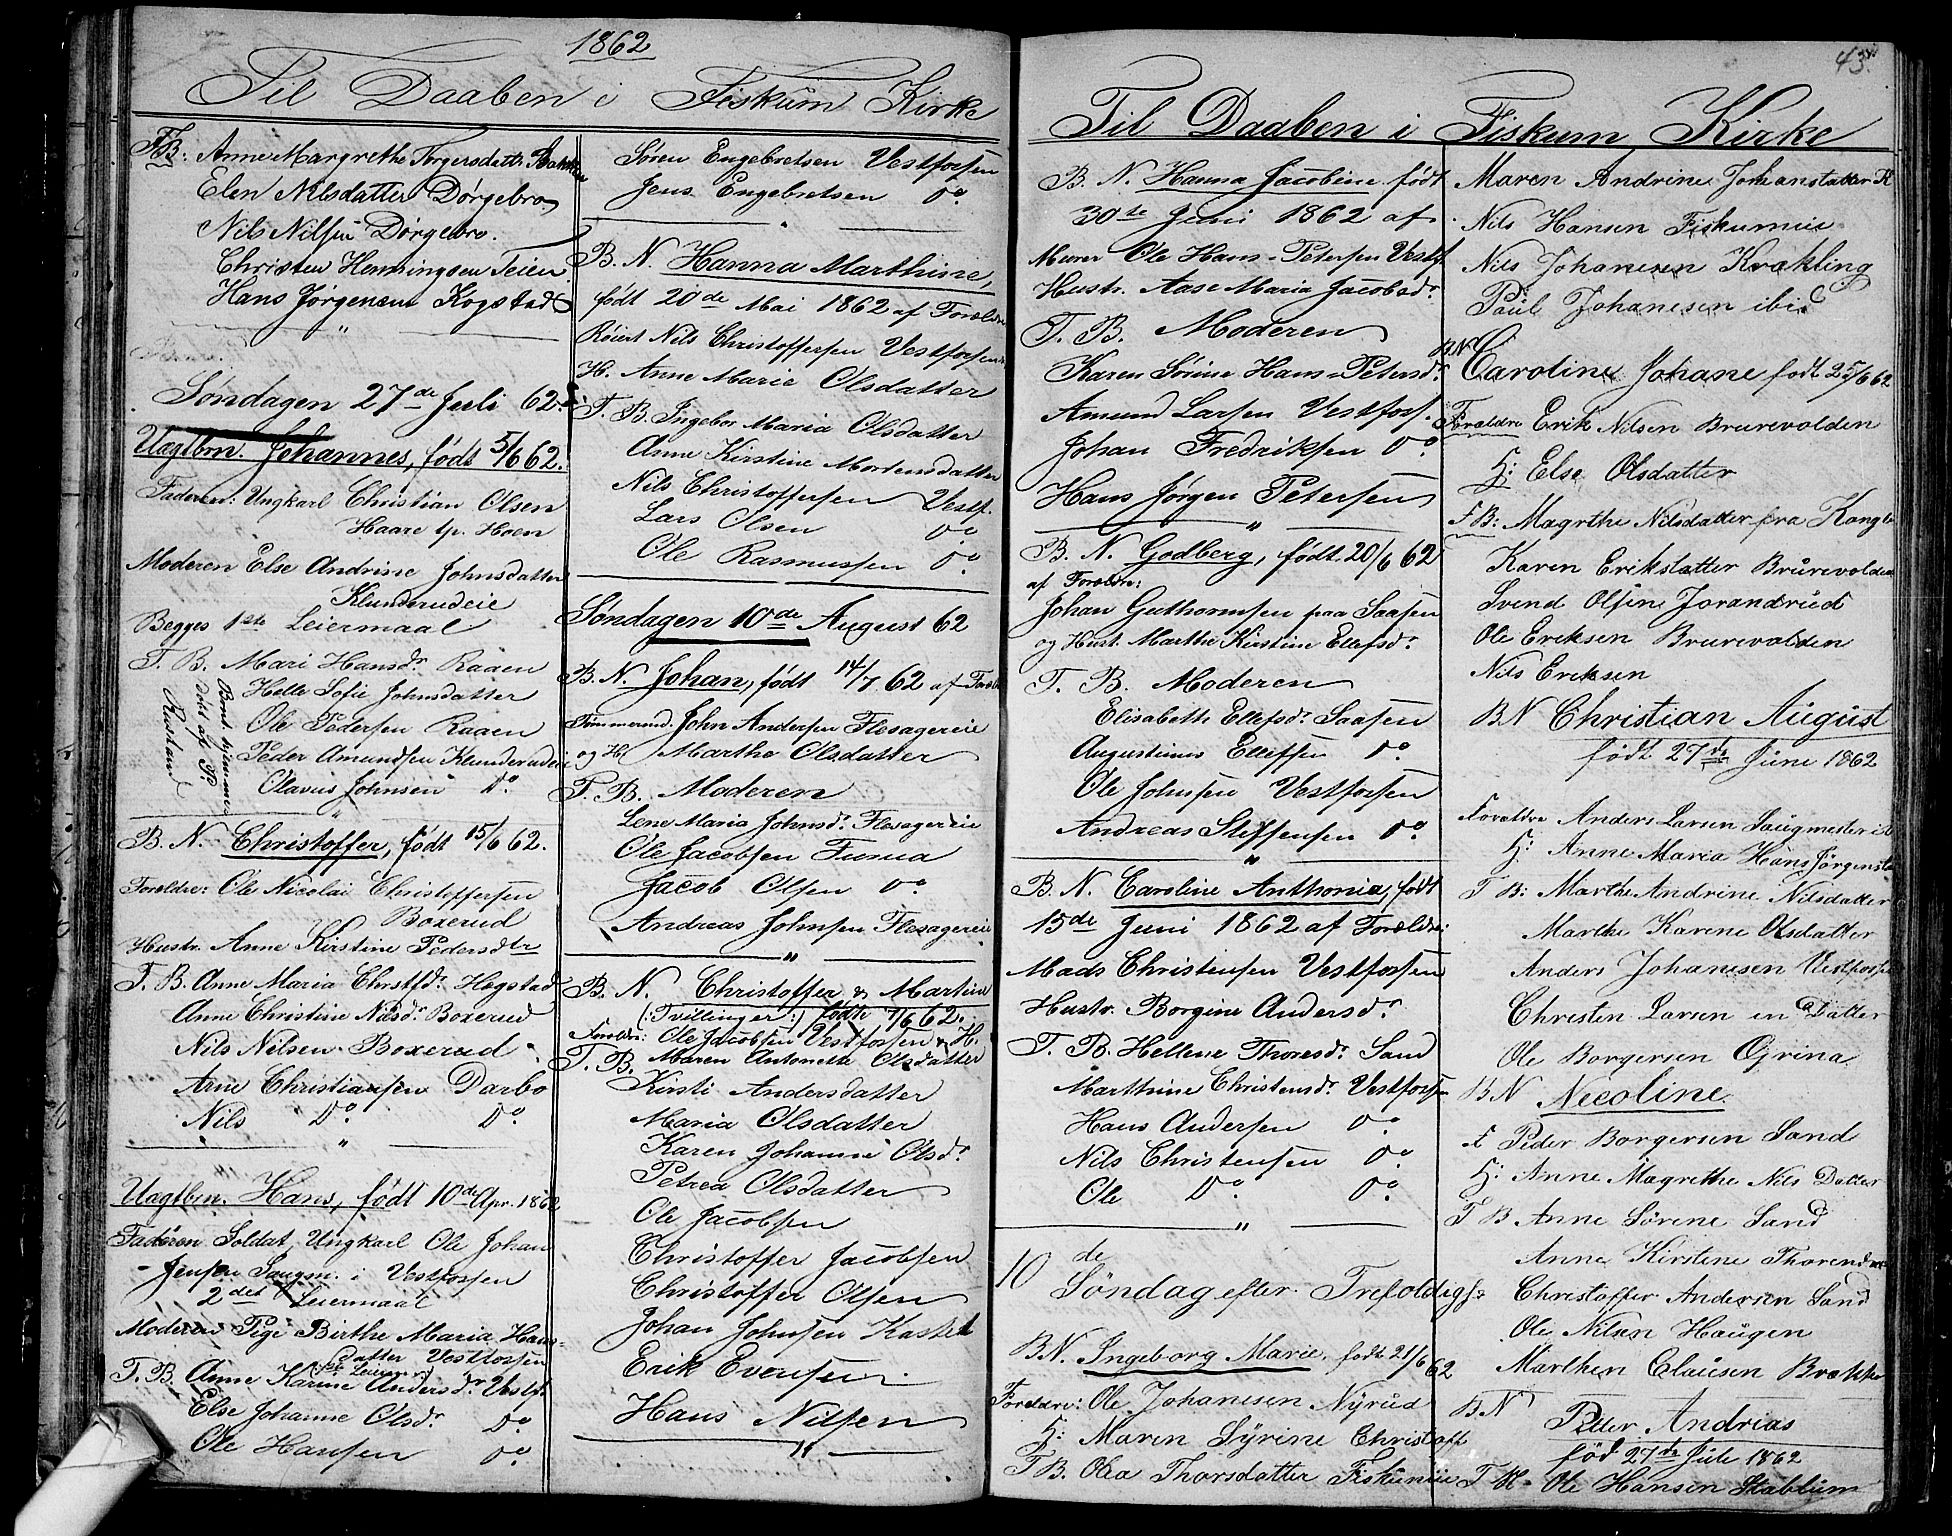 1862
Til Daaben i Fiskum Kirke
F.B: Anne Margrethe Torgersdatter Bakken
Elen Nilsdatter Dørgebro
Nils Nilsen Dørgebro.
Christen Henningsen Teien
Hans Jørgensen Kogstad
"
Søndagen 27de Juli 62.
Uægtbrn. Johannes, født 5/6 62.
Faderen: Ungkarl Christian Olsen
Haare tp. Hoen
Moderen Else Andrine Johnsdatter
Klunderudeie
Begges 1ste Leiermaal
T. B. Mari Hansdr Raaen
Helle Sofie Johnsdatter
Ole Pedersen Raaen
Peder Amundsen Klunderudeie
Olavus Johnsen Do.
Barnet hjemme-
døbt af P.
Rustand
"
B. N. Christoffer, født 15/6 62.
Forældre: Ole Nicolai Christoffersen
Boxerud
Hustr. Anne Kirstine Pedersdtr
T. B. Anne Maria Chrstfdr Hogstad
Anne Christine Nilsdr Boxerud
Nils Nilsen Boxerud
Arne Christiansen Darbo
Nils Do. Do.
"
Uægtbrn. Hans, født 10de Apr. 1862
Faderen Soldat, Ungkarl Ole Johan
Jensen Saugm. i Vestfossen
2det Leiermaal
Moderen Pige Birthe Maria Hans-
datter Vestfossen
1ste Leierm.
T. B. Anne Karine Andersdr Vestf.
Else Johanne Olsdr Do.
Ole Hansen Do.
Søren Engebretsen Vestfossen
Jens Engebretsen Do.
"
B. N. Hanna Marthine,
født 20de Mai 1862 af Forældre
Røiert Nils Christoffersen Vestfossen
H. Anne Marie Olsdatter
T. B. Ingebor Maria Olsdatter
Anne Kirstine Mortensdatter
Nils Christoffersen Vestf.
Lars Olsen Do.
Ole Rasmussen Do.
Søndagen 10de August 62
B. N. Johan, født 14/7 62 af Foræld
Tømmermd. John Andersen Flesagereie
og H. Marthe Olsdatter
T. B. Moderen
Lene Maria Johnsdr Flesagereie
Ole Jacobsen Furua
Jacob Olsen Do.
Andreas Johnsen Flesagereie
"
B. N. Christoffer & Martin
(:Tvillinger:) fødte 1/6 62.
Forældr: Ole Jacobsen Vestfossen & H.
T. B. Maren Antonette Olsdatter
Kirsti Andersdatter
Maria Olsdatter
Karen Johanne Olsdr
Petrea Olsdatter
Ole Jacobsen
Christoffer Jacobsen
Christoffer Olsen
Johan Johnsen Kastet
Erik Evensen
Hans Nilsen
"
43.
Til Daaben i Fiskum Kirke
B. N. Hanna Jacobine født
30te Juni 1862 af
Murer Ole Hans-Petersen Vestf
Hustr. Aase Maria Jacobsdr
T. B. Moderen
Karen Sørine Hans-Petersdr
Amund Larsen Vestfoss.
Johan Fredriksen Do.
Hans Jørgen Petersen
"
B. N. Godberg, født 20/6 62
af Forældre:
Johan Guthormsen paa Saasen
og Hust. Marthe Kirstine Ellefsdr
T. B. Moderen
Elisabeth Ellefsdr Saasen
Augustinus Ellefsen Do
Ole Johnsen Vestfossen
Andreas Steffensen Do.
"
B. N. Caroline Anthonia, født
15de Juni 1862 af Forældre:
Mads Christensen Vestfossen
Hustr. Borgine Andersdr
T. B. Hellene Thoresdr Sand
Marthine Christensdr Vestfossen
Hans Andersen Do.
Nils Christensen Do.
Ole Do. Do.
"
10de Søndag efter Trefoldighs
B N. Ingeborg Marie, født 21/6 62
Forældre: Ole Johanesen Nyrud
H: Maren Syrine Christoff
T B. Olea Thorsdatter Fiskumeie
Maren Andrine Johanstatter K
Nils Hansen Fiskumeie
Nils Johanesen Krækling
Paul Johanesen ibid
B N Caroline Johane født 25/6 62
Forældre Erik Nilsen Brurevolden
H: Else Olsdatter
F B: Magrthe Nilsdatter fra Kongb
Karen Erikstatter Brurevolden
Svend Olsen Jorandrud
Ole Eriksen Brurevolden
Nils Eriksen
B N Christian August
født 27de June 1862
Forældre Anders Larsen Saugmester i
H: Anne Maria Hans Jørgensta
T B: Marthe Andrine Nilsdatter
Marthe Karene Olsdatter
Anders Johanesen Vestfossen
Christen Larsen en Datter
Ole Borgersen Gjrina
B N Necoline
F Peder Borgersen Sand
H: Anne Magrethe Nils Datter
T B Anne Sørene Sand
Anne Kirstine Thorendr
Christoffer Andersen Sand
Ole Nilsen Haugen
Marthen Clausen Brække
B N Petter Andrias
fød 27de Jule 1862
F M Ole Hansen Stablum